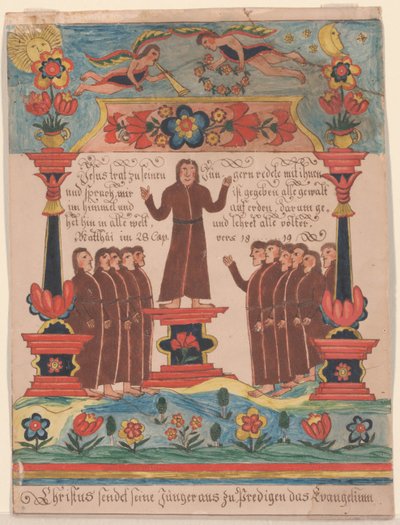 Jesus trat zu seinen Jün gern redete mit ihnen
und sprach, mir ist gegeben alle gewalt
im himmel und auf erden, darum ge,
het hin in alle welt, und lehret alle völker,
Matthäi im 28 Cap. vers 18 19
Christus sendet seine Jünger aus zu Predigen das Evangelium